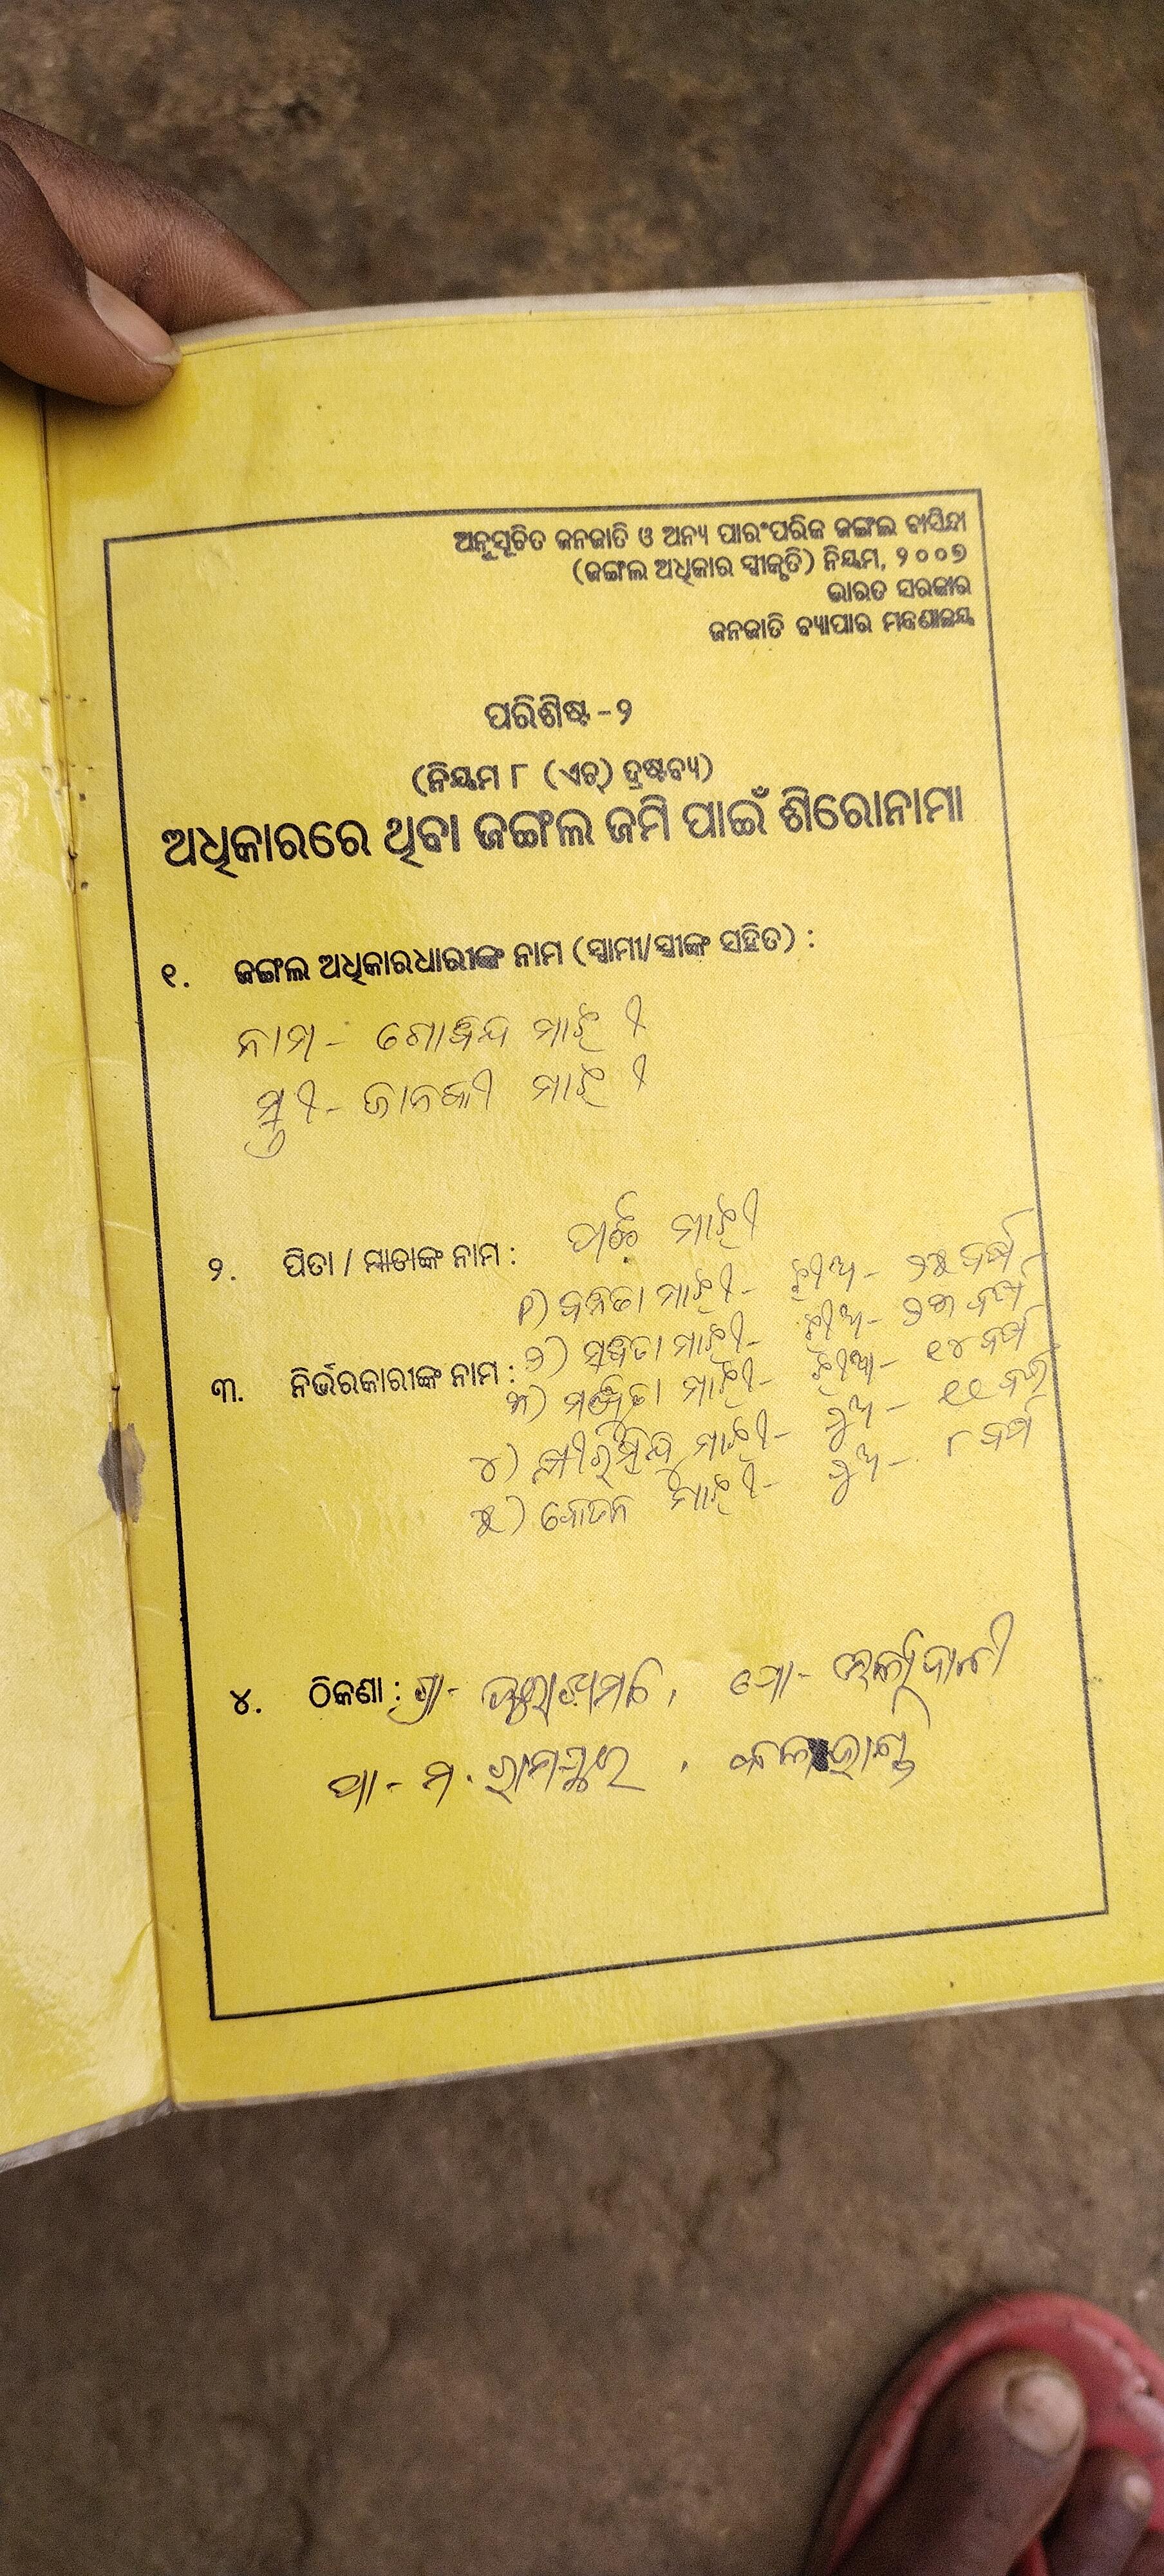 ଅନୁସୂଚିତ ଜନଜାତି ଓ ଅନ୍ୟ ପାରଂପରିକ ଜଙ୍ଗଲ ବାସିନ୍ଦା
(ଜଙ୍ଗଲ ଅଧିକାର ସ୍ୱୀକୃତି) ନିୟମ, ୨୦୦୭
ଭାରତ ସରକାର
ଜନଜାତି ବ୍ୟାପାର ମନ୍ତ୍ରଣାଳୟ
ପରିଶିଷ୍ଟ -୨
(ନିୟମ ୮ (ଏଚ୍) ଦ୍ରଷ୍ଟବ୍ୟ)
ଅଧିକାରରେ ଥିବା ଜଙ୍ଗଲ ଜମି ପାଇଁ ଶିରୋନାମା
୧. ଜଙ୍ଗଲ ଅଧିକାରଧାରୀଙ୍କ ନାମ (ସ୍ୱାମୀ/ସ୍ତ୍ରୀଙ୍କ ସହିତ) :
ନାମ - ଗୋବିନ୍ଦ ମାଝୀ
ସ୍ତ୍ରୀ - ଜାନକୀ ମାଝୀ
୨. ପିତା / ମାତାଙ୍କ ନାମ : ମାଝୀ
୧) ବନିତା ମାଝୀ - ଝୀଅ - ୨୫ ବର୍ଷ
୨) ସବିତା ମାଝୀ - ଝୀଅ - ୨୩ ବର୍ଷ
୩. ନିର୍ଭରକାରୀଙ୍କ ନାମ :
୩) ମାଝୀ - ଝୀଅ - ୧୪ ବର୍ଷ
୪) ମାଝୀ - ପୁଅ - ୧୧ ବର୍ଷ
୫) ମାଝୀ - ପୁଅ - ୮ ବର୍ଷ
୪. ଠିକଣା : ଗ୍ରା - , ପୋ -
ଥା - ମ. ରାମପୁର ,